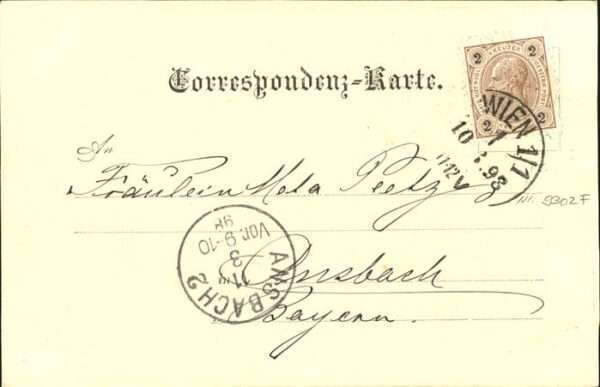 Correspondenz-Karte.
2 KREUZER 2
2 2
WIEN 1/1
10 3.98
11-12V
An
Fräulein Meta
Nr. 9302F
Ansbach
Bayern.
ANSBACH 2
11
3
Vor. 9-10
98